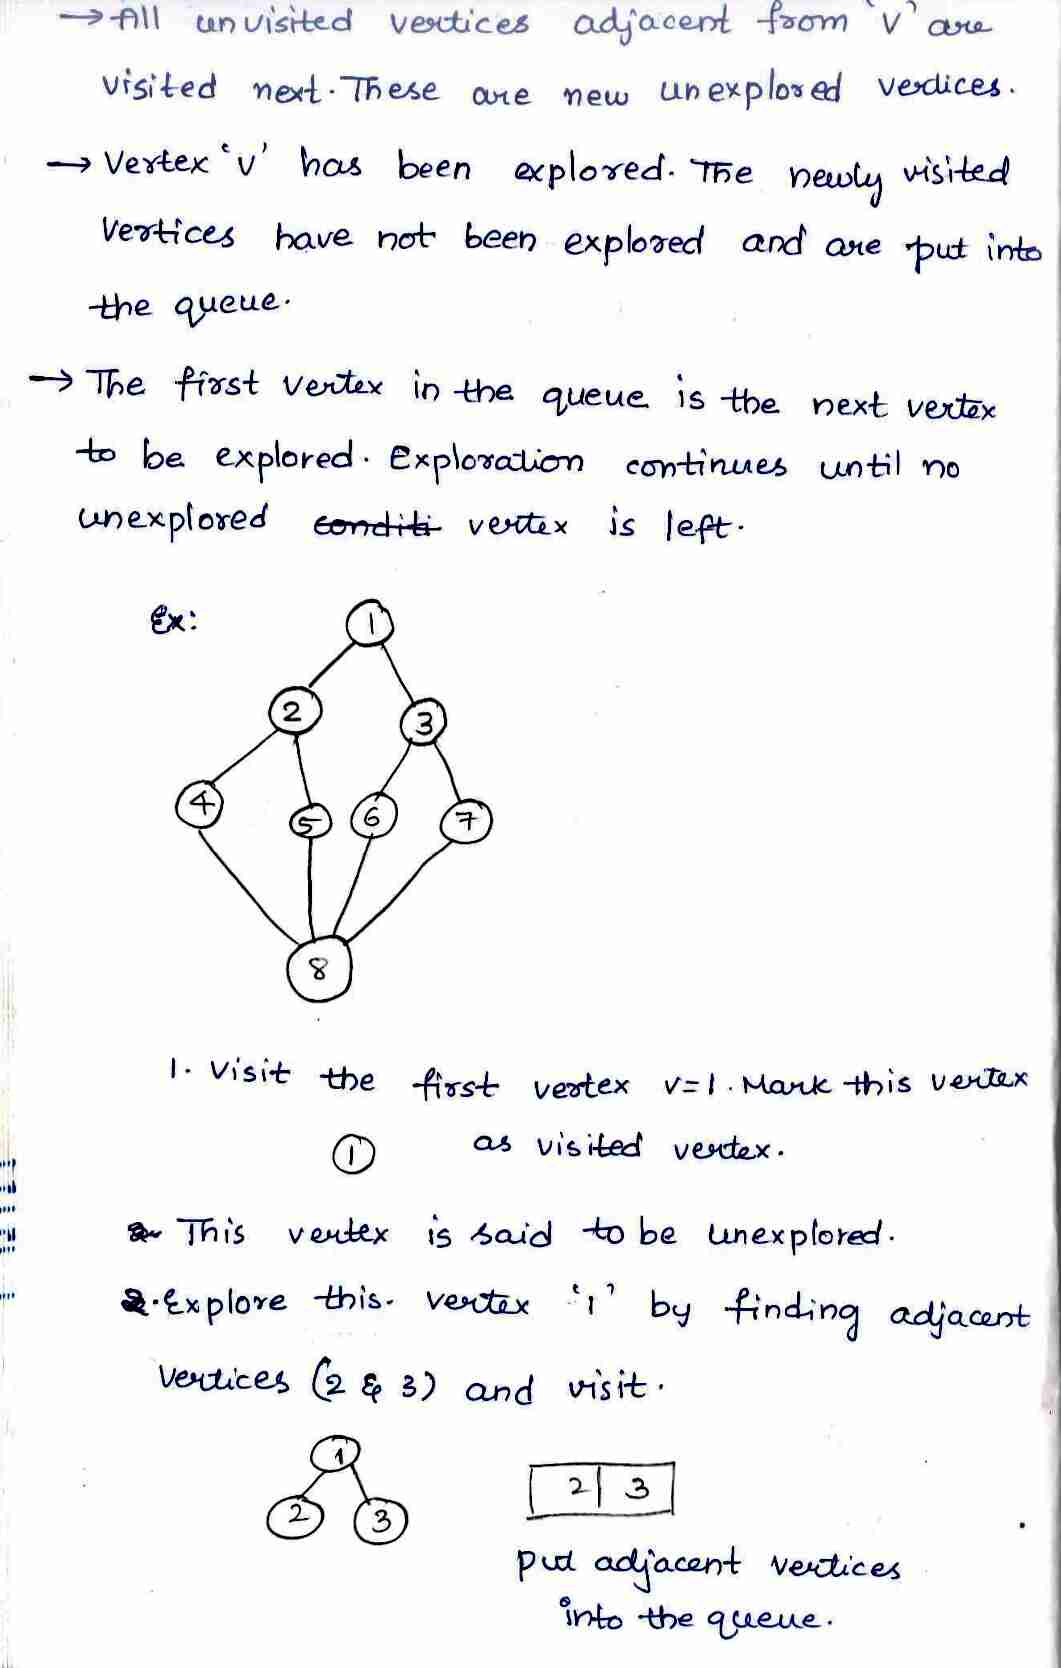 → All unvisited vertices adjacent from 'v' are
visited next. These are new unexplored vertices.
→ Vertex 'v' has been explored. The newly visited
Vertices have not been explored and are put into
the queue.
→ The first vertex in the queue is the next vertex
to be explored. Exploration continues until no
unexplored conditi vertex is left.
Ex:
1
2
3
4
5
6
7
8
1. Visit the first vertex v=1. Mark this vertex
1 as visited vertex.
This vertex is said to be unexplored.
2. Explore this. vertex '1' by finding adjacent
Vertices (2 & 3) and visit.
1
2 3
2 3
put adjacent vertices
into the queue.